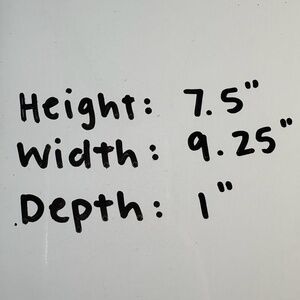 Height: 7.5"
Width: 9.25"
Depth: 1"